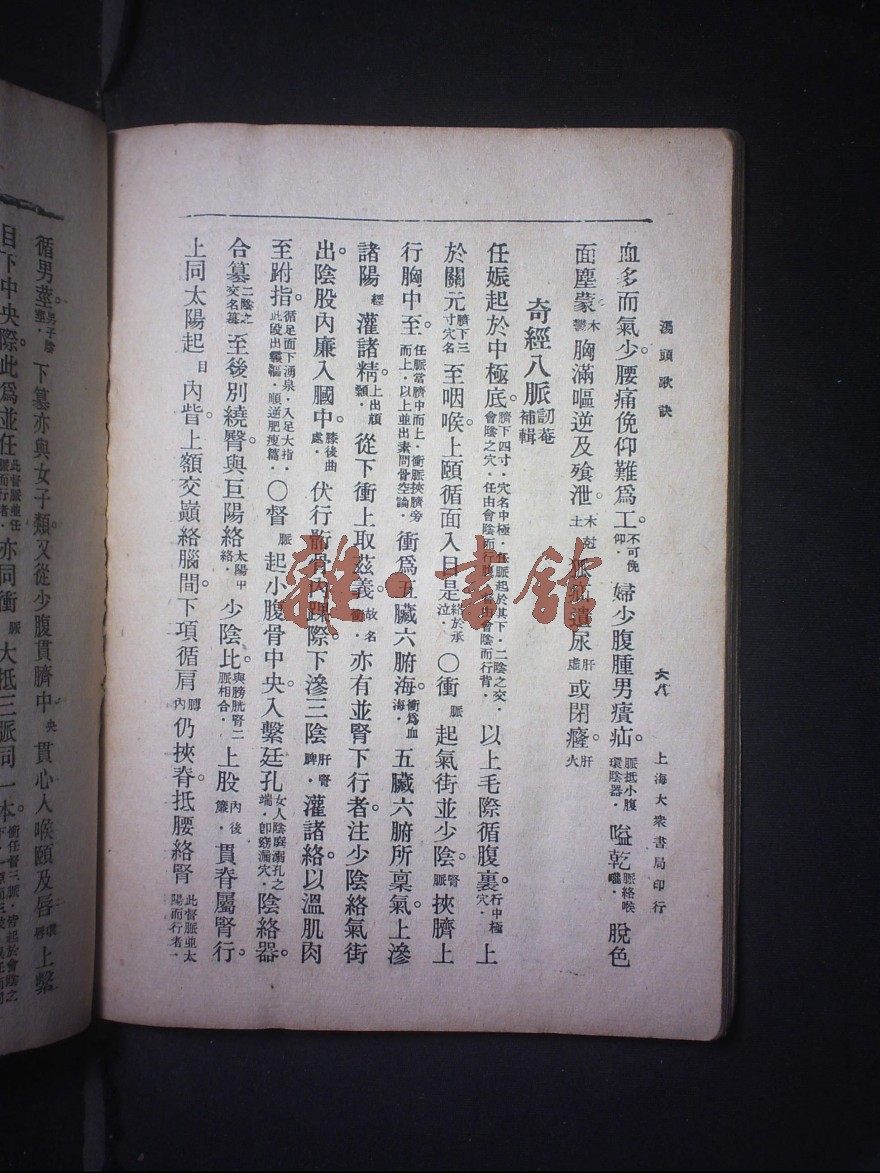 湯頭歌訣
六八
上海大衆書局印行
血多而氣少。腰痛俛仰難爲工。不可俛仰。婦少腹腫男㿉疝。脈抵小腹環陰器。嗌乾脈絡喉嚨。脫色
面塵蒙木鬱。胸滿嘔逆及飧泄。木尅土。狐疝遺尿肝虛或閉癃。肝火
奇經八脈訒菴補輯
任脈起於中極底。臍下四寸。穴名中極。任脈起於其下。二陰之交。會陰之穴。任由會陰而行腹。督由會陰而行背。以上毛際循腹裏。行中極穴。上
於關元臍下三寸穴名至咽喉。上頤循面入目是。絡於承泣。〇衝脈起氣街並少陰。腎脈挾臍上
行胸中至。任脈當臍中而上。衝脈挾臍旁而上。以上並出素問骨空論。衝爲五臟六腑海。衝爲血海。五臟六腑所稟氣。上滲
諸陽經灌諸精。上出頏顙。從下衝上取茲義。故名衝。亦有並腎下行者。注少陰絡氣街
出。陰股內廉入膕中。膝後曲處。伏行骭骨內踝際。下滲三陰肝腎脾。灌諸絡以溫肌肉
至跗指。循足面下湧泉。入足大指。此段出靈樞。順逆肥瘦篇。〇督脈起小腹骨中央。入繫廷孔女人陰庭溺孔之端。卽窈漏穴。陰絡器。
合篡二陰之交名篡至後別繞臀。與巨陽絡太陽中絡。少陰比。與膀胱腎二脈相合。上股內後廉。貫脊屬腎行。
上同太陽起目內眥。上額交巔絡腦間。下項循肩膊內仍挾脊。抵腰絡腎此督脈並太陽而行者一
循男莖。男子陰莖。下篡亦與女子類。又從少腹貫臍中央。貫心入喉頤及唇環唇。上繫
目下中央際。此爲並任此督脈並任脈而行者。亦同衝脈。大抵三脈同一本。
雜·書館